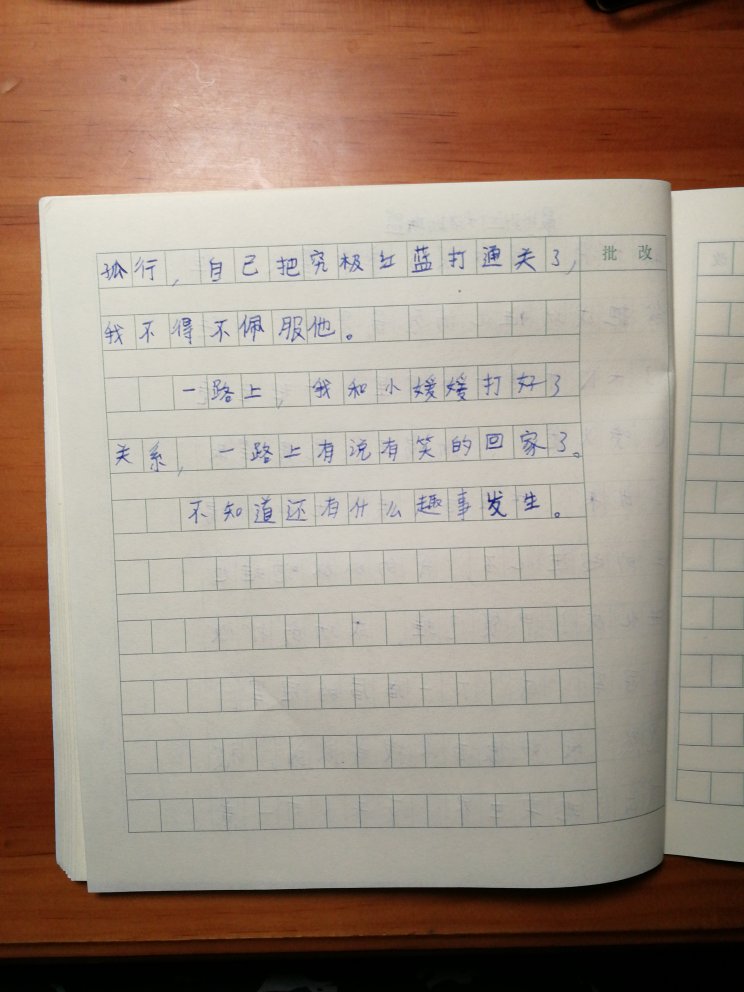 批改
孤行，自己把究极红蓝打通关了，
我不得不佩服他。
一路上，我和小媛媛打好了
关系，一路上有说有笑的回家了。
不知道还有什么趣事发生。